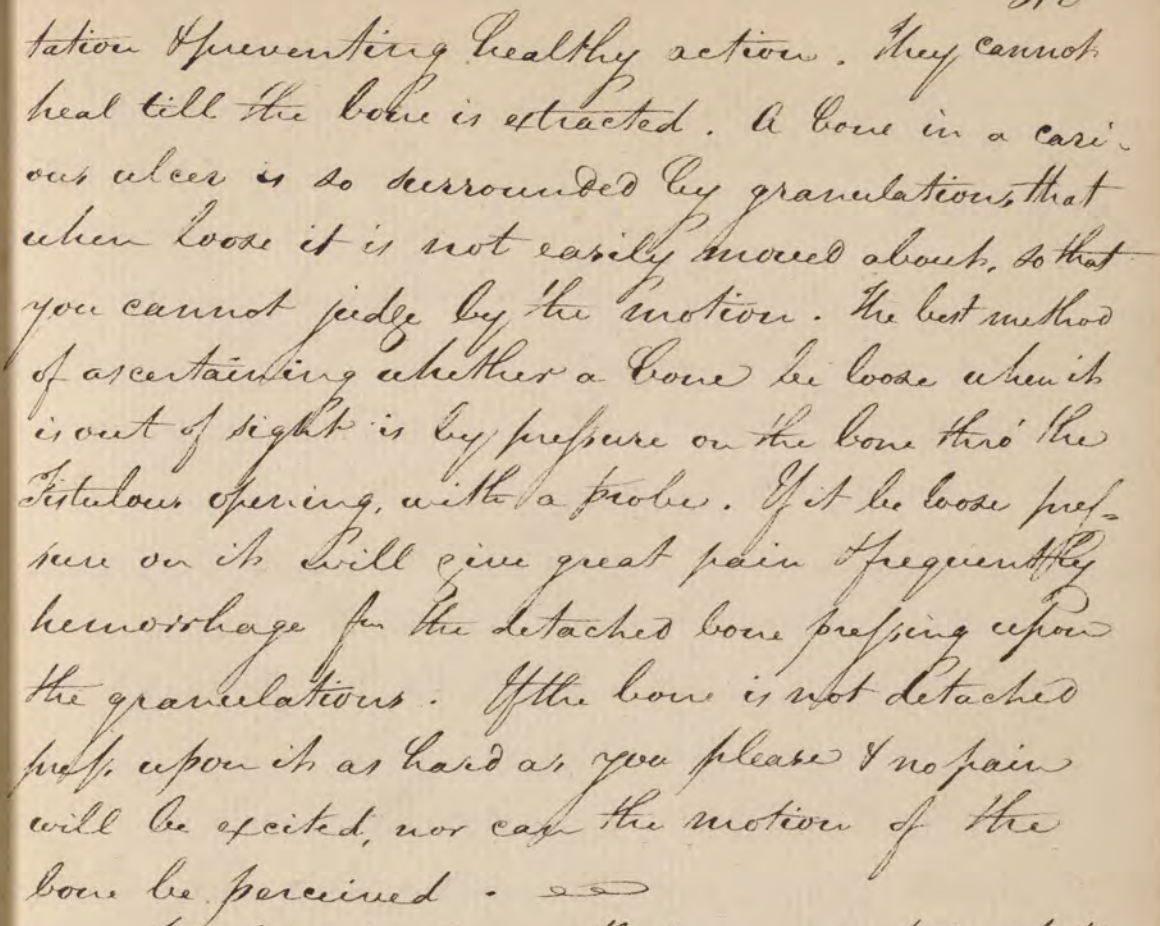 tation & preventing healthy action. They cannot
heal till the bone is extracted. A bone in a cari-
ous ulcer is so surrounded by granulations, that
when loose it is not easily moved about, so that
you cannot judge by the motion. The best method
of ascertaining whether a bone be loose when it
is out of sight is by pressure on the bone thro' the
Fistulous opening, with a probe. If it be loose pres=
sure on it will give great pain & frequently
hemorrhage fm the detached bone pressing upon
the granulations. If the bone is not detached
press upon it as hard as you please & no pain
will be excited, nor can the motion of the
bone be perceived.